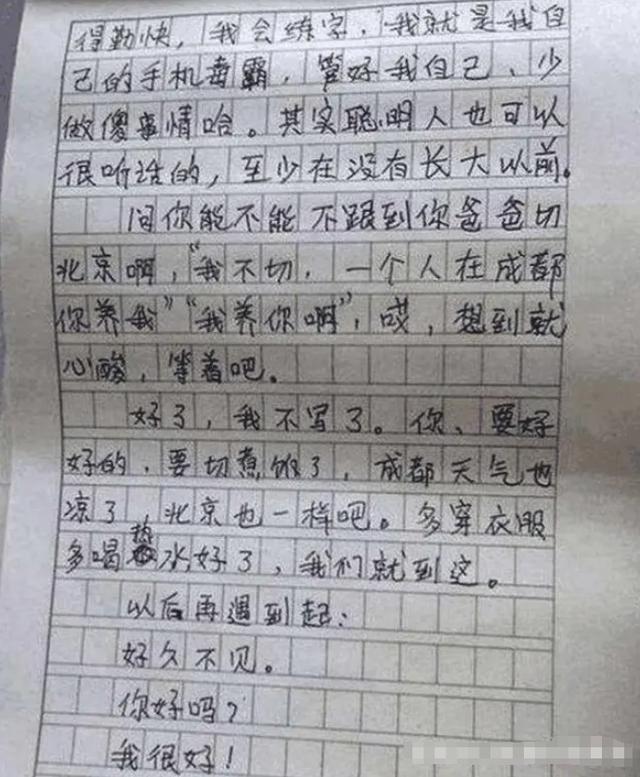 得勤快，我会练字，我就是我自
己的手机毒霸，管好我自己、少
做傻事情哈。其实聪明人也可以
很听话的，至少在没有长大以前。
问你能不能不跟到你爸爸切
北京啊，“我不切，一个人在成都
你养我”“我养你啊”，哎，想到就
心酸，等着吧。
好了，我不写了。你、要好
好的，要切煮饭了，成都天气也
凉了，北京也一样吧。多穿衣服
多喝热水好了，我们就到这。
以后再遇到起：
好久不见。
你好吗？
我很好！